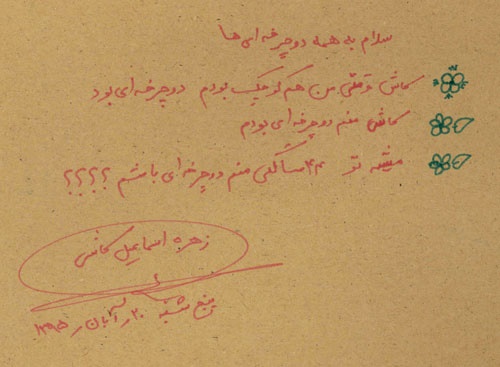 سلام به همه دوچرخه ای ها
کاش وقتی من هم کوچک بودم دوچرخه ای بود
کاش منم دوچرخه ای بودم
میشه تو ۴۴ سالگی منم دوچرخه ای باشم ؟؟؟؟
زهره اسماعیل کاشی
پنج شنبه ۲۰ آبان ۱۳۹۵